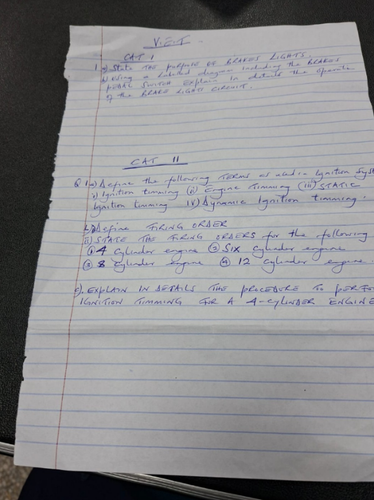 V.E.T
CAT 1
1. a) State THE PURPOSE OF BRAKES LIGHTS.
b) Using a labelled diagram including the BRAKES
PEDAL SWITCH EXPLAIN in details the operate
of the BRAKE LIGHT CIRCUIT.
CAT II
Q 1. a) Define the following TERMS as used in Ignition Syst
i) Ignition timming (ii) Engine Timming (iii) STATIC
Ignition timming iv) Dynamic Ignition timming.
Define FIRING ORDER
ii) STATE THE FIRING ORDERS for the following
① 4 Cylinder engine ② SIX Cylinder engine
③ 8 Cylinder engine ④ 12 Cylinder engine
c). EXPLAIN IN DETAILS THE PROCEDURE TO PERFO
IGNITION TIMMING FOR A 4-CYLINDER ENGINE